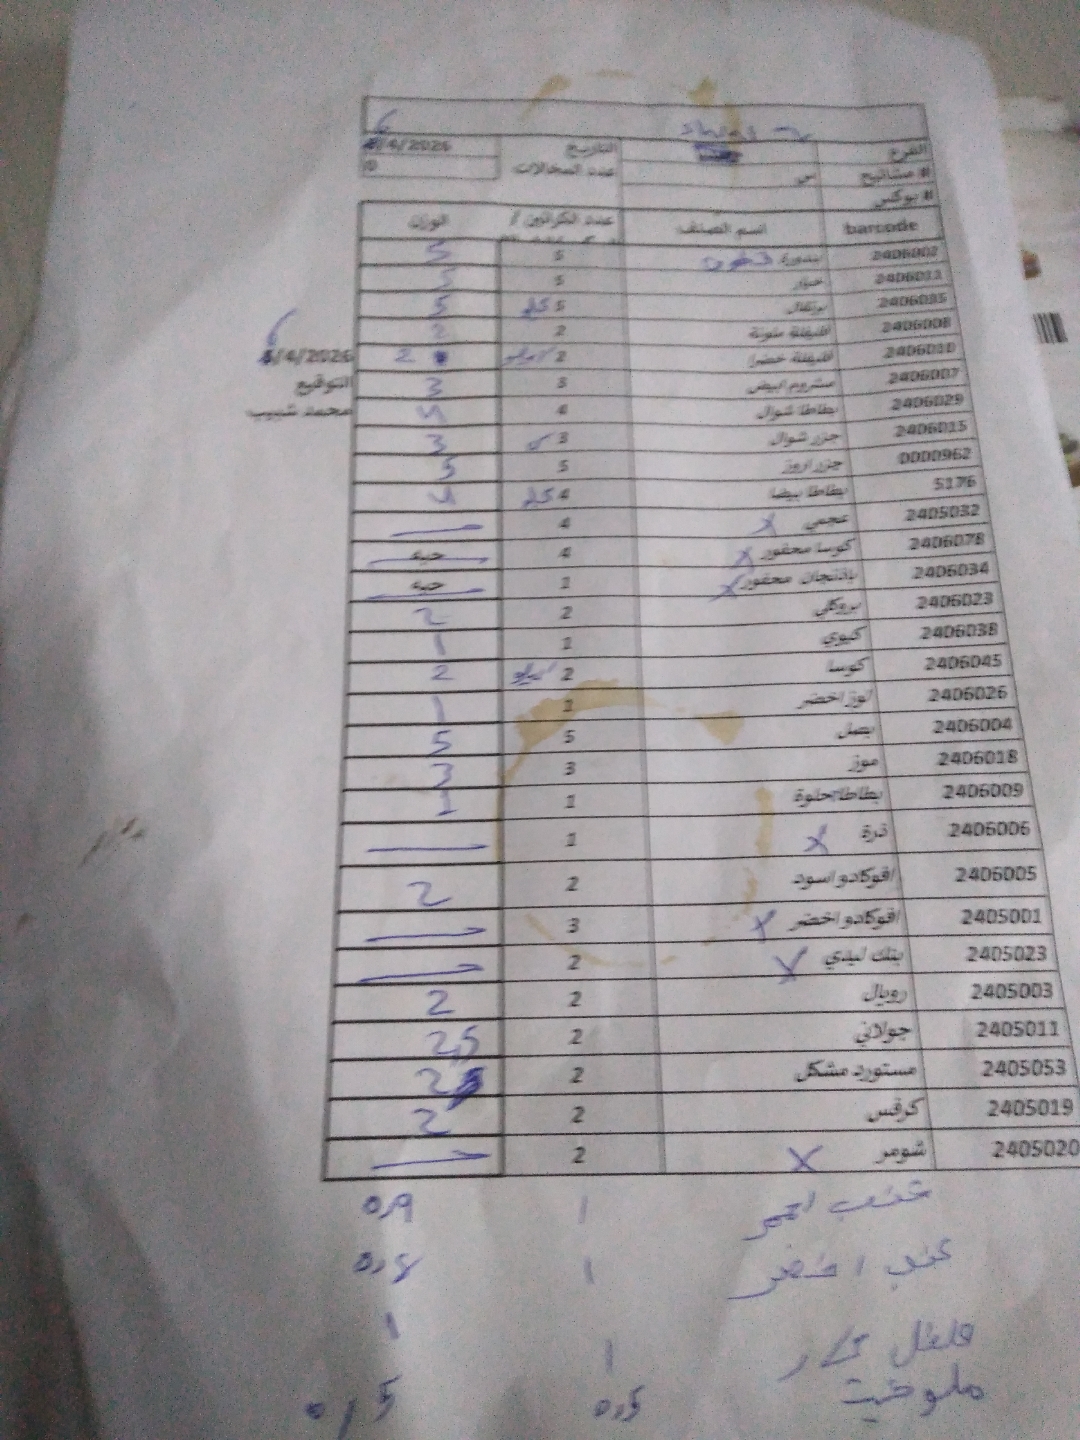 الفرع التاريخ 6/4/2026
# مشاتيح س عدد المحالات 0
# بوكس
barcode اسم الصنف عدد الكراتين / الوزن
2406002 بندورة 5 5
2406011 خيار 5 5
2406035 برتقال 5 5
2406008 افليفلة ملونة 2 2
2406010 افليفلة خضرا 2 2
6/4/2026
2406007 مشروم ابيض 3 3
التوقيع
2406029 بطاطا شوال 4 4
محمد شبيب
2406015 جزر شوال 3 3
0000962 جزر اروز 5 5
5176 بطاطا بيضا 4 4
2405032 عجمي x 4
2406078 كوسا محفور x 4 حبه
2406034 باذنجان محفور x 1 حبه
2406023 بروكلي 2 2
2406038 كيوي 1 1
2406045 كوسا 2 2
2406026 لوز اخضر 1 1
2406004 بصل 5 5
2406018 موز 3 3
2406009 بطاطا حلوة 1 1
2406006 ذرة x 1
2406005 افوكادو اسود 2 2
2405001 افوكادو اخضر x 3
2405023 بنك ليدي x 2
2405003 رويال 2 2
2405011 جولاني 2 2,5
2405053 مستورد مشكل 2
2405019 كرفس 2 2
2405020 شومر x 2
عنب احمر 1 0,9
عنب اخضر 1 0,8
فلفل حار 1 1
ملوخية 0,5 0,5